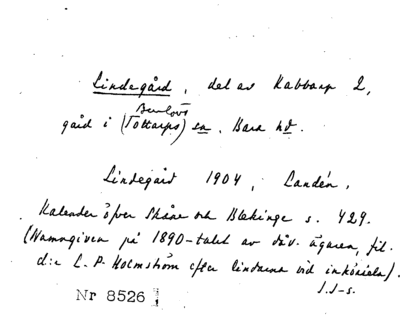 Lindegård, del av Kabbarp 2,
Burlövs
gård i (Tottarps) sn, Bara hd.
Lindegård 1904, Landén,
Kalender öfver Skåne och Blekinge s. 429.
(Namngiven på 1890-talet av dåv. ägaren, fil.
d:r L. P. Holmström efter lindarna vid inkörseln).
J.J-s.
Nr 8526